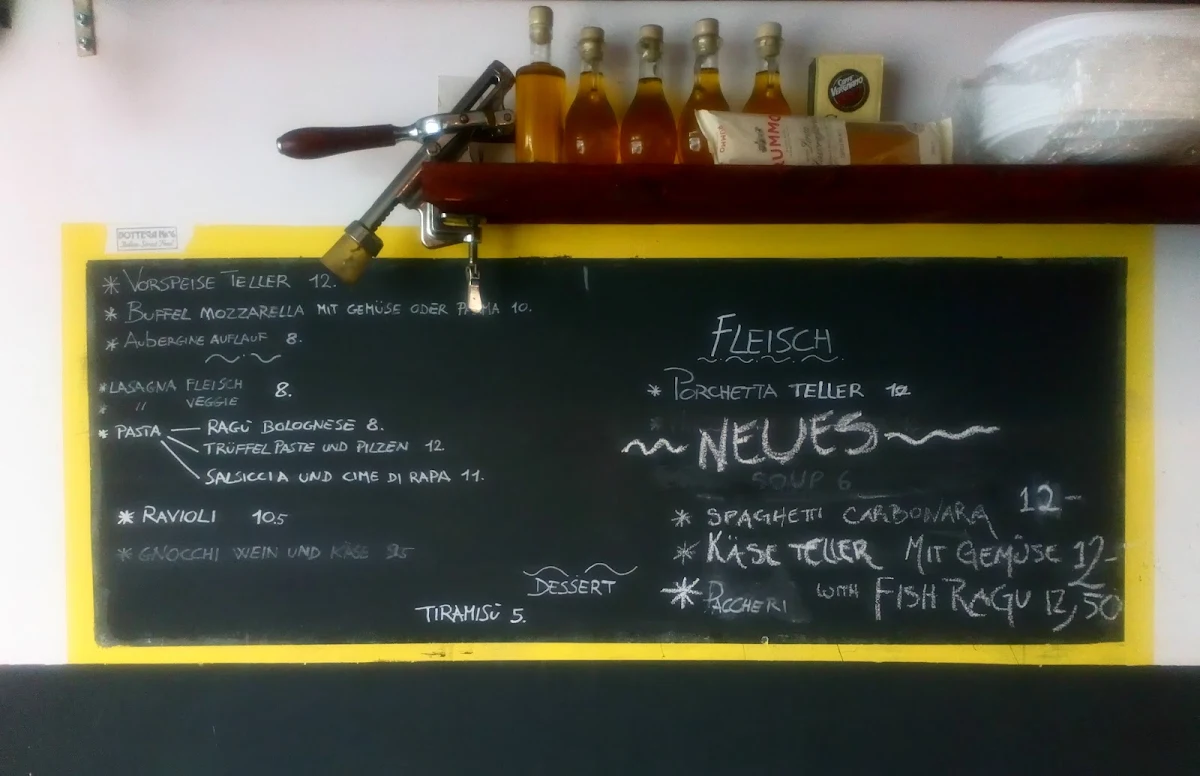 CAFFÈ
VERGNANO
RUMMO
BOTTEGA No6
Italian Street Food
* VORSPEISE TELLER 12.
* BUFFEL MOZZARELLA MIT GEMÜSE ODER PARMA 10.
* AUBERGINE AUFLAUF 8.
* LASAGNA FLEISCH 8.
* " VEGGIE
* PASTA — RAGÙ BOLOGNESE 8.
TRÜFFEL PASTE UND PILZEN 12
SALSICCIA UND CIME DI RAPA 11.
* RAVIOLI 10.5
* GNOCCHI WEIN UND KÄSE 9.5
DESSERT
TIRAMISÙ 5.
FLEISCH
* PORCHETTA TELLER 12
NEUES
SOUP 6
* SPAGHETTI CARBONARA 12-
* KÄSE TELLER MIT GEMÜSE 12-
* PACCHERI WITH FISH RAGU 12,50